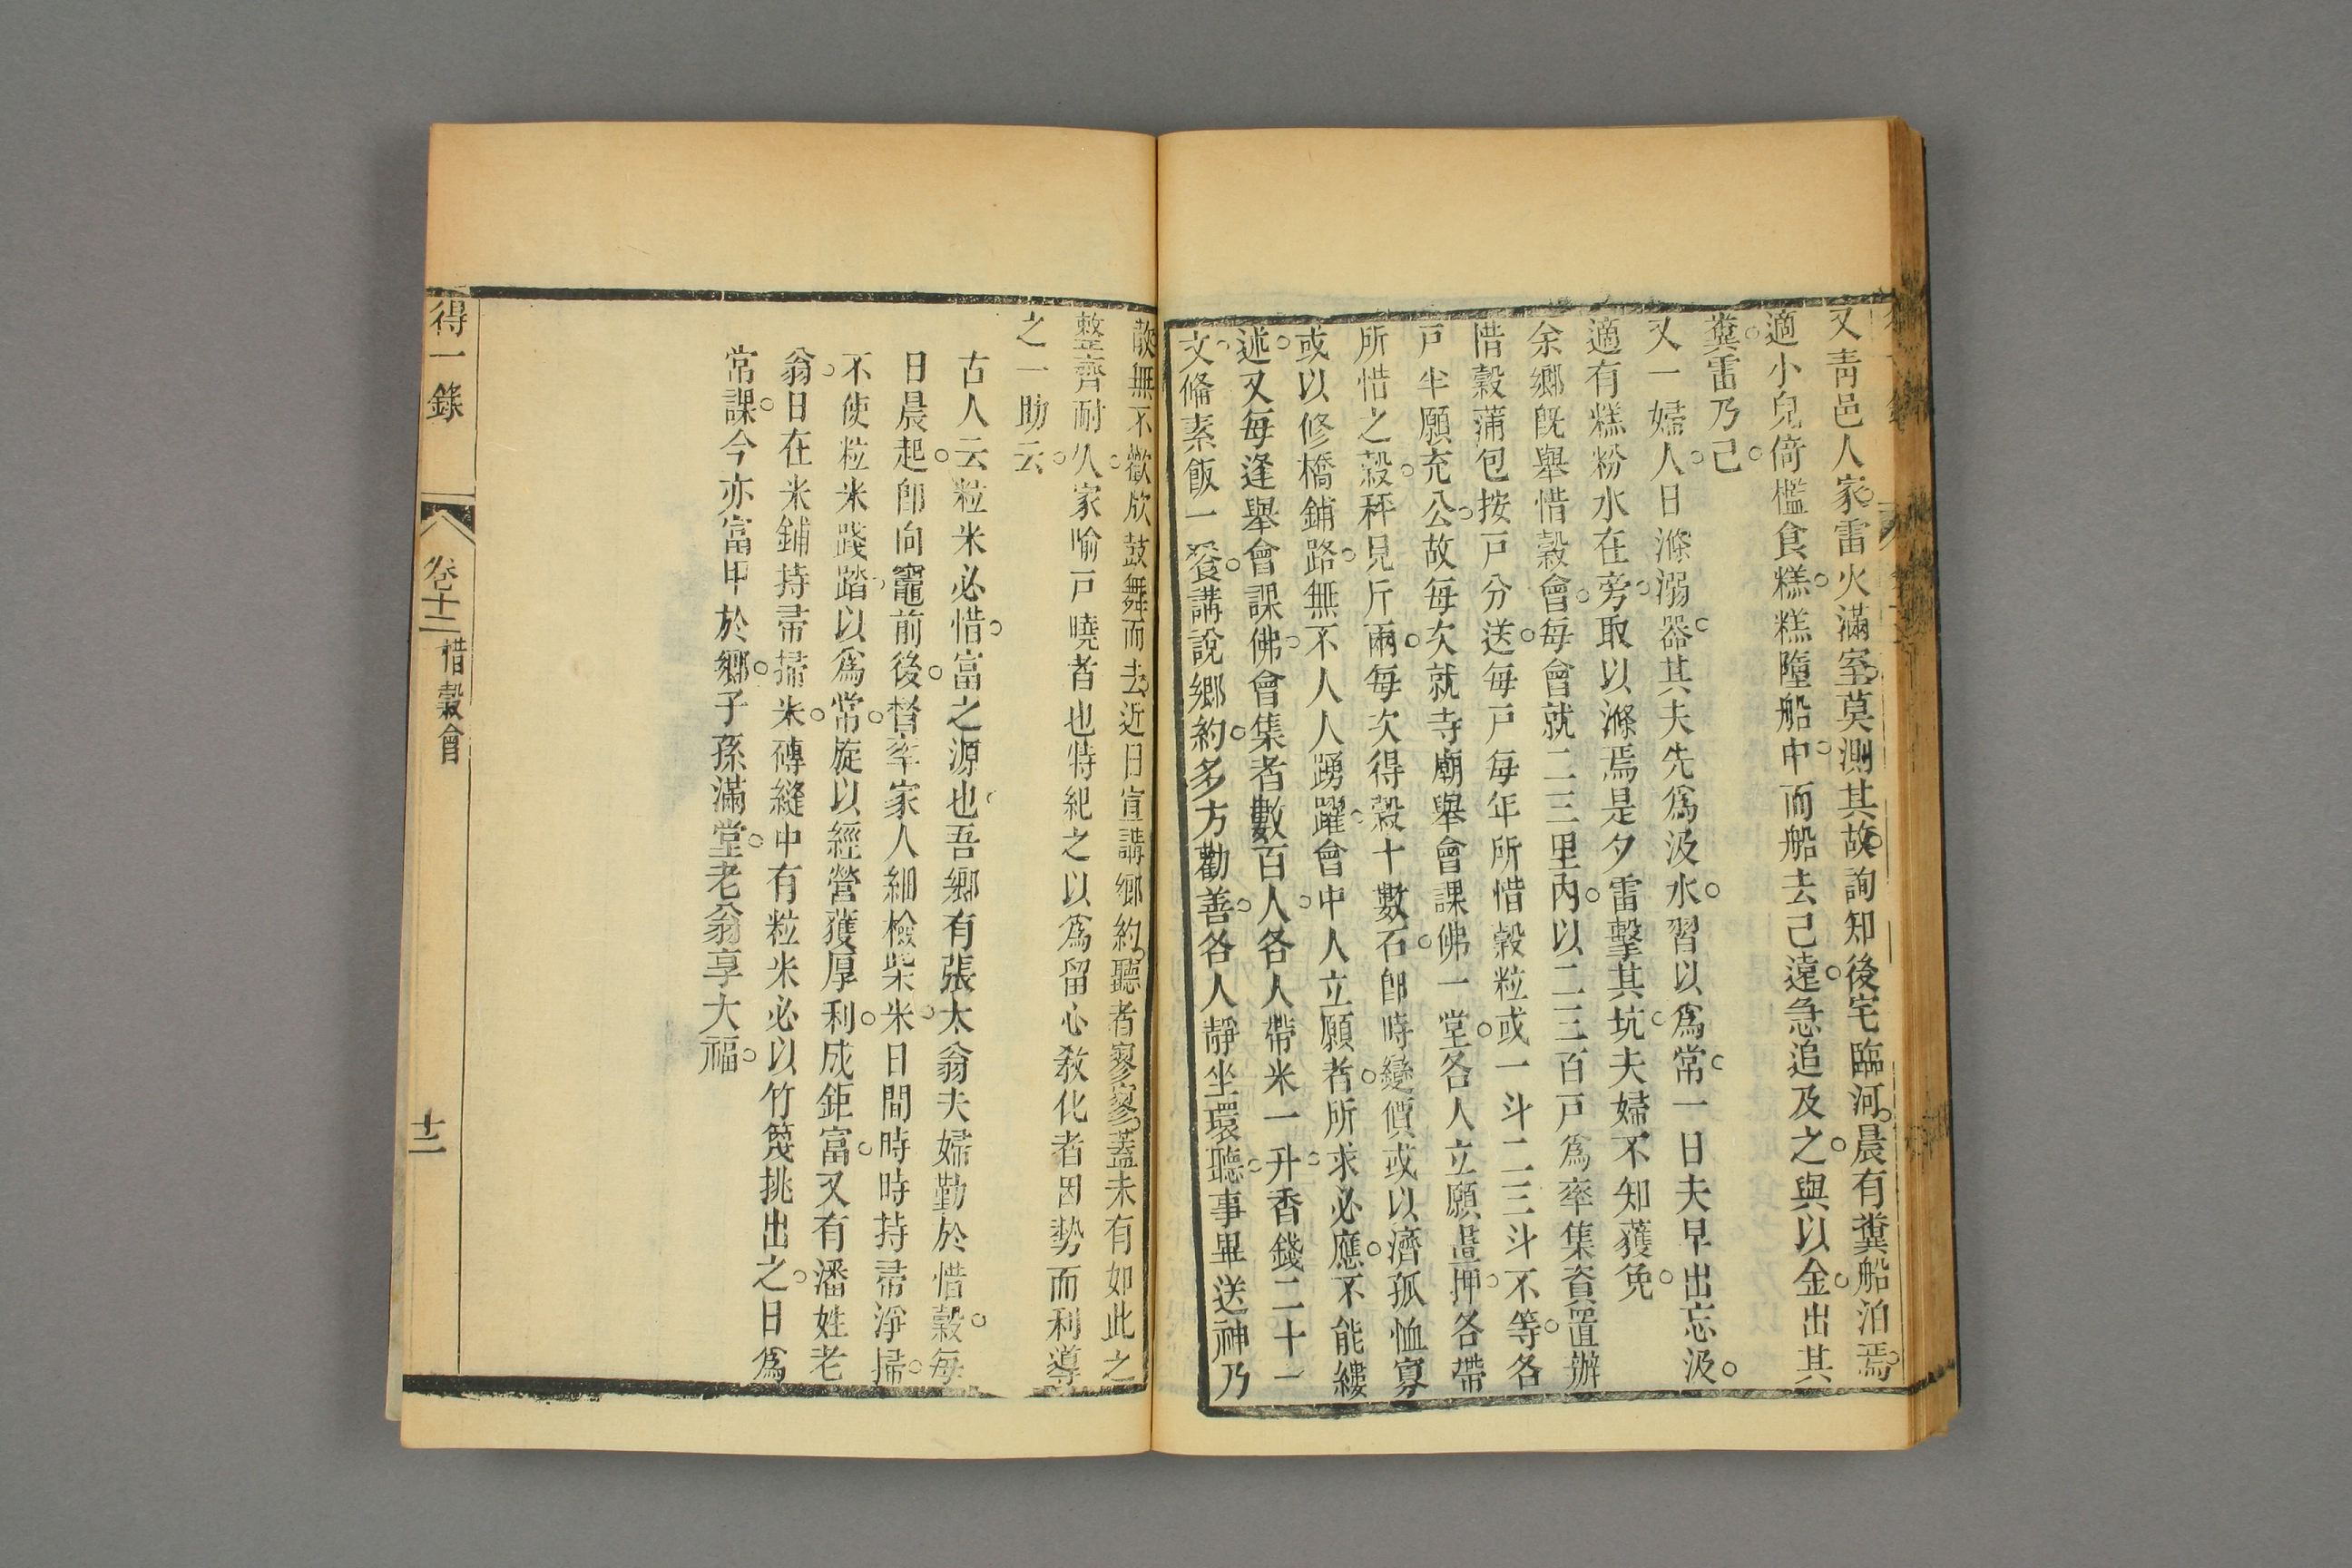 又靑邑人家雷火滿室莫測其故詢知後宅臨河晨有糞船泊焉
適小兒倚檻食糕糕墮船中而船去已遠急追及之與以金出其
糞雷乃已
又一婦人日滌溺器其夫先爲汲水習以爲常一日夫早出忘汲
適有糕粉水在旁取以滌焉是夕雷擊其坑夫婦不知獲免
余鄉旣舉惜穀會每會就二三里內以二三百戸爲率集資置辦
惜穀蒲包按戸分送每戸每年所惜穀粒或一斗二三斗不等各
戸半願充公故每次就寺廟舉會課佛一堂各人立願畫押各帶
所惜之穀秤見斤兩每次得穀十數石卽時變價或以濟孤恤寡
或以修橋鋪路無不人人踴躍會中人立願者所求必應不能縷
述又每逢舉會課佛會集者數百人各人帶米一升香錢二十一
文脩素飯一餐講說鄉約多方勸善各人靜坐環聽事畢送神乃
散無不歡欣鼓舞而去近日宣講鄉約聽者寥寥蓋未有如此之
整齊耐久家喻戸曉者也特紀之以爲留心敎化者因勢而利導
之一助云
古人云粒米必惜富之源也吾鄉有張太翁夫婦勤於惜穀每
日晨起卽向竈前後督率家人細檢柴米日間時時持帚淨掃
不使粒米踐踏以爲常旋以經營獲厚利成鉅富又有潘姓老
翁日在米鋪持帚掃米磚縫中有粒米必以竹篾挑出之日爲
常課今亦富甲於鄉子孫滿堂老翁享大福
得一錄
卷十二
惜穀會
十二